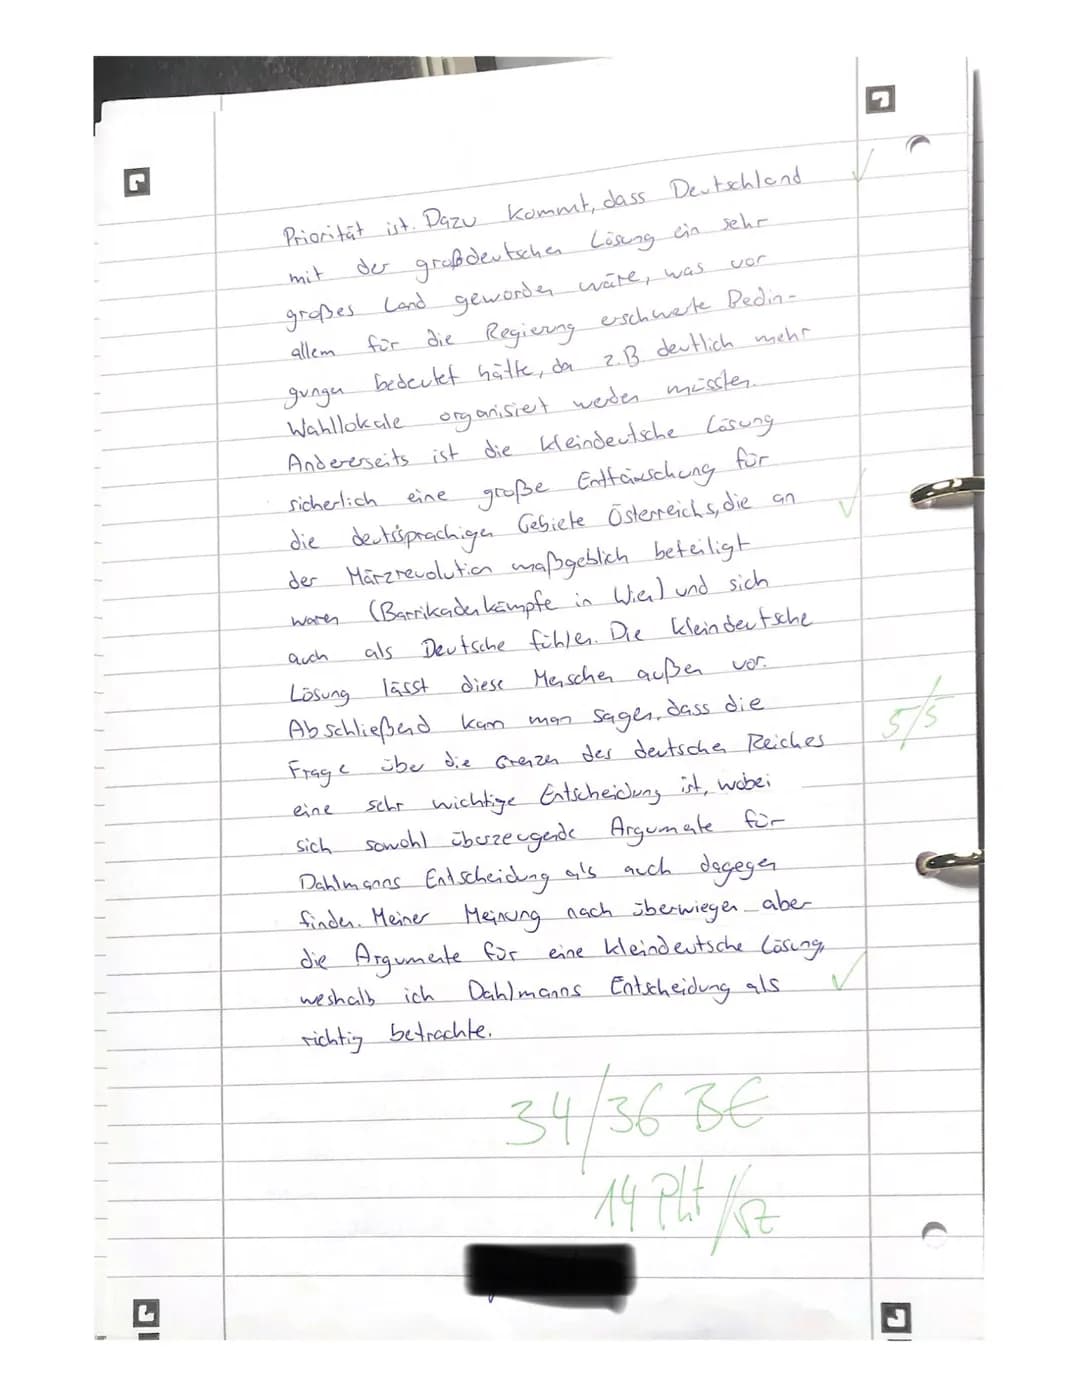 Priorität ist. Dazu kommt, dass Deutschland
mit der großdeutschen Lösung ein sehr
großes Land geworden wäre, was vor
allem für die Regierung erschwerte Bedin-
gungen bedeutet hätte, da z.B deutlich mehr
Wahllokale organisiert werden müssten.
Andererseits ist die kleindeutsche Lösung
sicherlich eine große Enttäuschung für
die deutssprachigen Gebiete Österreichs, die an
der Märzrevolution maßgeblich beteiligt
waren (Barrikadenkämpfe in Wien) und sich
auch als Deutsche fühlen. Die kleindeutsche
Lösung lässt diese Menschen außen vor.
Abschließend kann man sagen, dass die
Frage über die Grenzen des deutschen Reiches
5/5
eine sehr wichtige Entscheidung ist, wobei
sich sowohl überzeugende Argumente für
Dahlmanns Entscheidung als auch dagegen
finden. Meiner Meinung nach überwiegen aber
die Argumente für eine kleindeutsche Lösung,
weshalb ich Dahlmanns Entscheidung als
richtig betrachte.
34/36 BE
14 Pkt